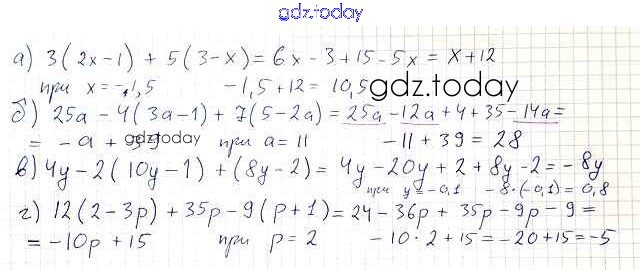 gdz.today
а) 3(2x-1) + 5(3-x) = 6x - 3 + 15 - 5x = x + 12
при x = -1,5 -1,5 + 12 = 10,5
gdz.today
б) 25a - 4(3a-1) + 7(5-2a) = 25a - 12a + 4 + 35 - 14a =
= -a + 39 при a = 11 -11 + 39 = 28
gdz.today
в) 4y - 2(10y-1) + (8y-2) = 4y - 20y + 2 + 8y - 2 = -8y
при y = -0,1 -8·(-0,1) = 0,8
г) 12(2-3p) + 35p - 9(p+1) = 24 - 36p + 35p - 9p - 9 =
= -10p + 15 при p = 2 -10·2 + 15 = -20 + 15 = -5